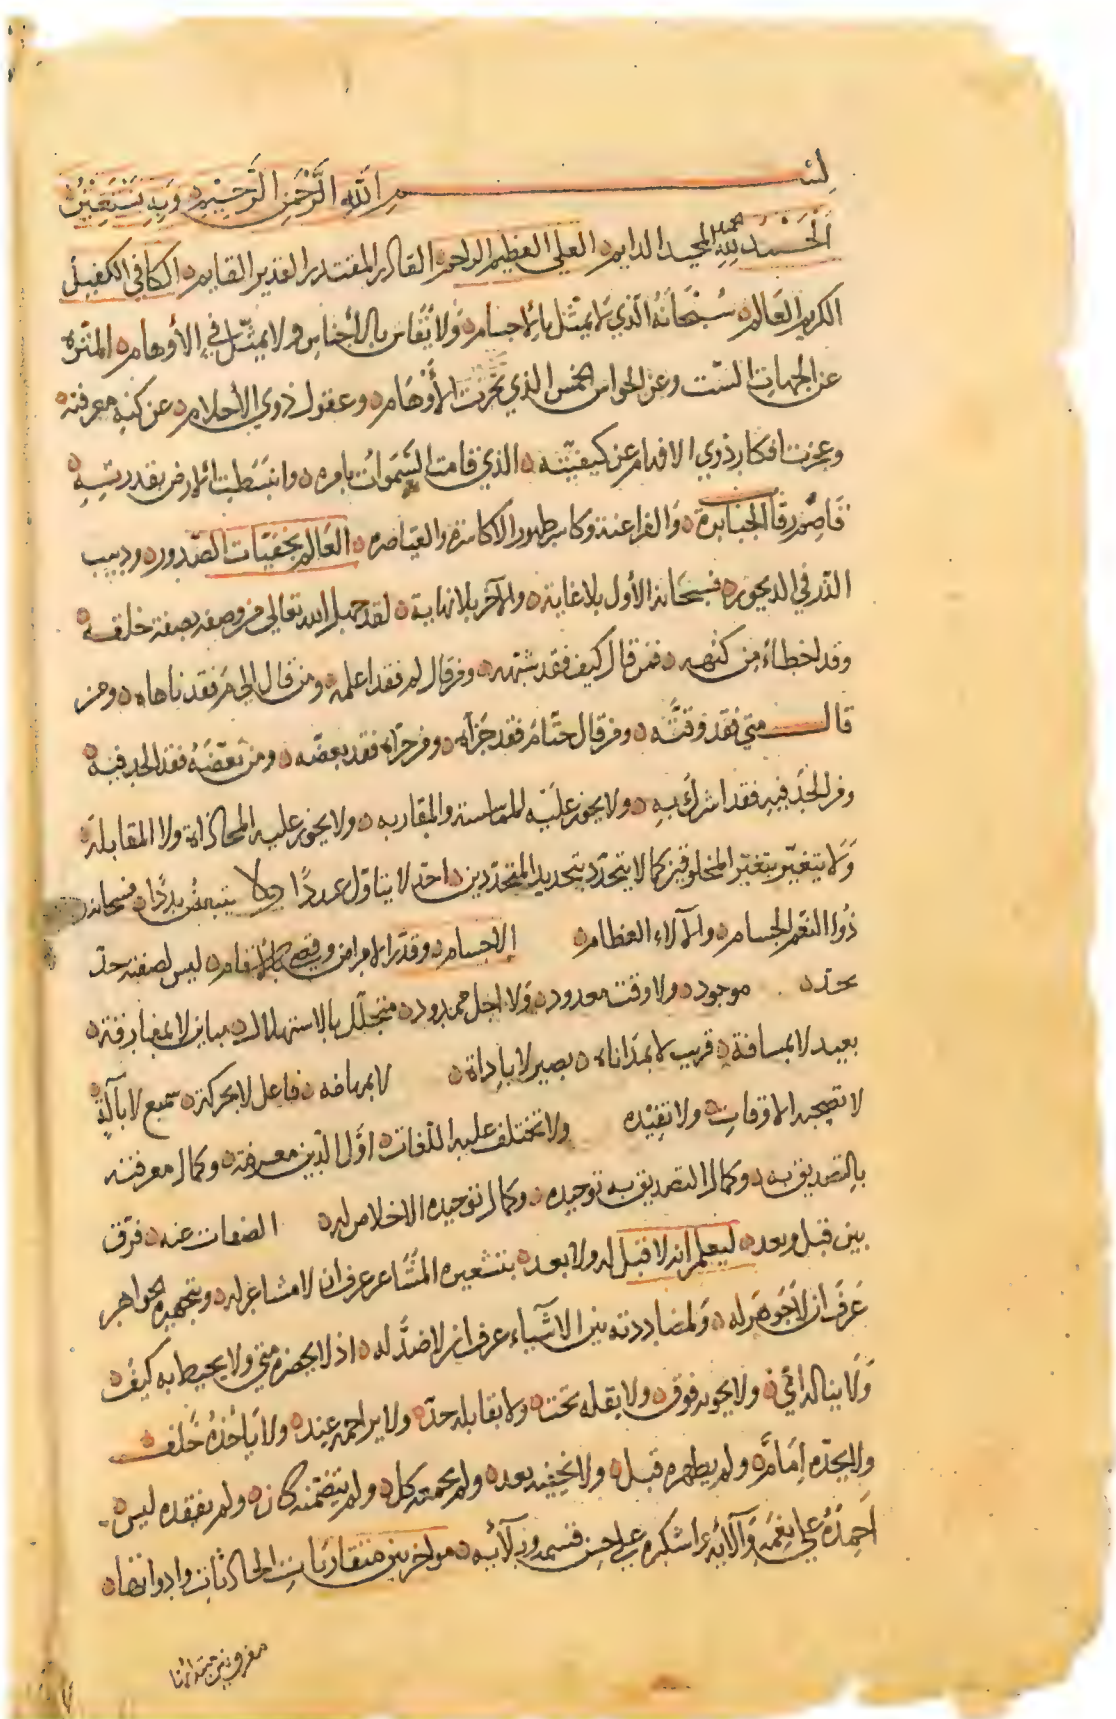 بسم الله الرحمن الرحيم وبه نستعين
الحمد لله المجيد الدايم العلي العظيم الواحد القادر المقتدر القدير القايم الكافي الكفيل
الكريم العالم سبحانه الذي لا يمثل بالاجسام ولا يقاس بالأجناس ولا يمثل في الأوهام المنزه
عن الجهات الست وعن الحواس الخمس الذي تحيرت الأوهام وعقول ذوي الأحلام عن كنه معرفته
وعجزت أفكار ذوي الافهام عن كيفيته الذي قامت السموات بامره وانبسطت الارض بقدرته
قاصم رقاب الجبابرة والفراعنة وكاسر ظهور الاكاسرة والقياصره العالم بخفيات الصدور ودبيب
الذر في الديجور فسبحانه الأول بلا غاية والآخر بلا نهاية لقد جهل الله تعالى من وصفه بصفة خلقه
وقد اخطاء من كنهه فمن قال كيف فقد شبهه ومن قال لم فقد اعله ومن قال الى م فقد ناهاه ومن
قال متى فقد وقته ومن قال حتام فقد جزآه ومن جزآه فقد بعضه ومن بعضه فقد الحد فيه
ومن الحد فيه فقد اشرك به ولا يجوز عليه المماسة والمقاربه ولا يجوز عليه المحاذاة ولا المقابلة
ولا يتغير بتغير المخلوقين كما لا يتحدد بتحديد المتحددين احد لا بتاول عددا ولا يتبعض بددا فسبحانه
ذو النعم الجسام والآلاء العظام الاجسام وقدر الامراض والاسقام ليس لصفته حد
يحده موجود ولا وقت معدود ولا اجل ممدود متجلل بالاستهلال مباين لا بمفارقة
بعيد لا بمسافة قريب لا بمداناه بصير لا باداة فاعل لا بحركة سميع لا بآلة
لا تصحبه الاوقات ولا تقيده ولا تختلف عليه اللغات اول الدين معرفته وكمال معرفته
بالتصديق به وكمال التصديق به توحيده وكمال توحيده الاخلاص له الصفات عنه فرق
بين قبل وبعد ليعلم ان لا قبل له ولا بعد بتشعيره المشاعر عرف ان لا مشاعر له وبتجهيره الجواهر
عرف ان لا جوهر له ولمضاددته بين الاشياء عرف ان لا ضد له اذ لا يحضره متى ولا يحيط به كيف
ولا يناله أي ولا يحويه فوق ولا يقله تحت ولا يقابله حد ولا يزاحمه عند ولا يأخذه خلف
ولا يحده إمام ولم يظهره قبل ولا يخفيه بعد ولم يجمعه كل ولم يتضمنه كان ولم يفقده ليس
احمده على نعمه وآلائه واشكره على حسن قسمه وبلائه مواخر بين متقاربات الحادثات وادواتها
مفرق بين متدانيا